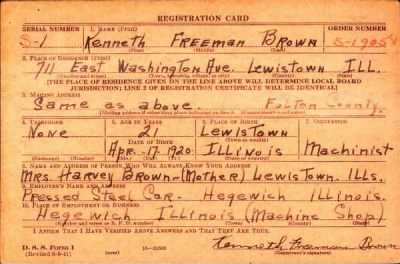 REGISTRATION CARD
SERIAL NUMBER 1. NAME (Print) ORDER NUMBER
S-1 Kenneth FREEMAN BROWN S-1905
(First) (Middle) (Last)
2. PLACE OF RESIDENCE (Print)
711 East Washington Ave. Lewistown ILL.
(Number and street) (Town, township, village, or city) (County) (State)
[THE PLACE OF RESIDENCE GIVEN ON THE LINE ABOVE WILL DETERMINE LOCAL BOARD
JURISDICTION; LINE 2 OF REGISTRATION CERTIFICATE WILL BE IDENTICAL]
3. MAILING ADDRESS
Same as above. Fulton County.
[Mailing address if other than place indicated on line 2. If same insert word same]
4. TELEPHONE 5. AGE IN YEARS 6. PLACE OF BIRTH 7. OCCUPATION
None 21 LewisTown
DATE OF BIRTH (Town or county)
Apr. 17. 1920. Illinois Machinist
(Exchange) (Number) (Mo.) (Day) (Yr.) (State or country)
8. NAME AND ADDRESS OF PERSON WHO WILL ALWAYS KNOW YOUR ADDRESS
Mrs. Harvey Brown-(Mother) LewisTown. Ills.
9. EMPLOYER'S NAME AND ADDRESS
Pressed Steel Car. Hegewich Illinois.
10. PLACE OF EMPLOYMENT OR BUSINESS
Hegewich Illinois (Machine Shop)
(Number and street or R. F. D. number) (Town) (County) (State)
I AFFIRM THAT I HAVE VERIFIED ABOVE ANSWERS AND THAT THEY ARE TRUE.
D. S. S. Form 1
(Revised 6-9-41) (over) Kenneth Freeman Brown
(Registrant's signature)